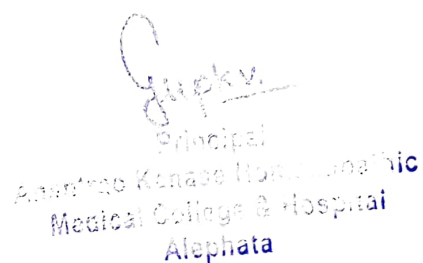 Principal
Anantrao Kanase Homoeopathic
Medical College & Hospital
Alephata